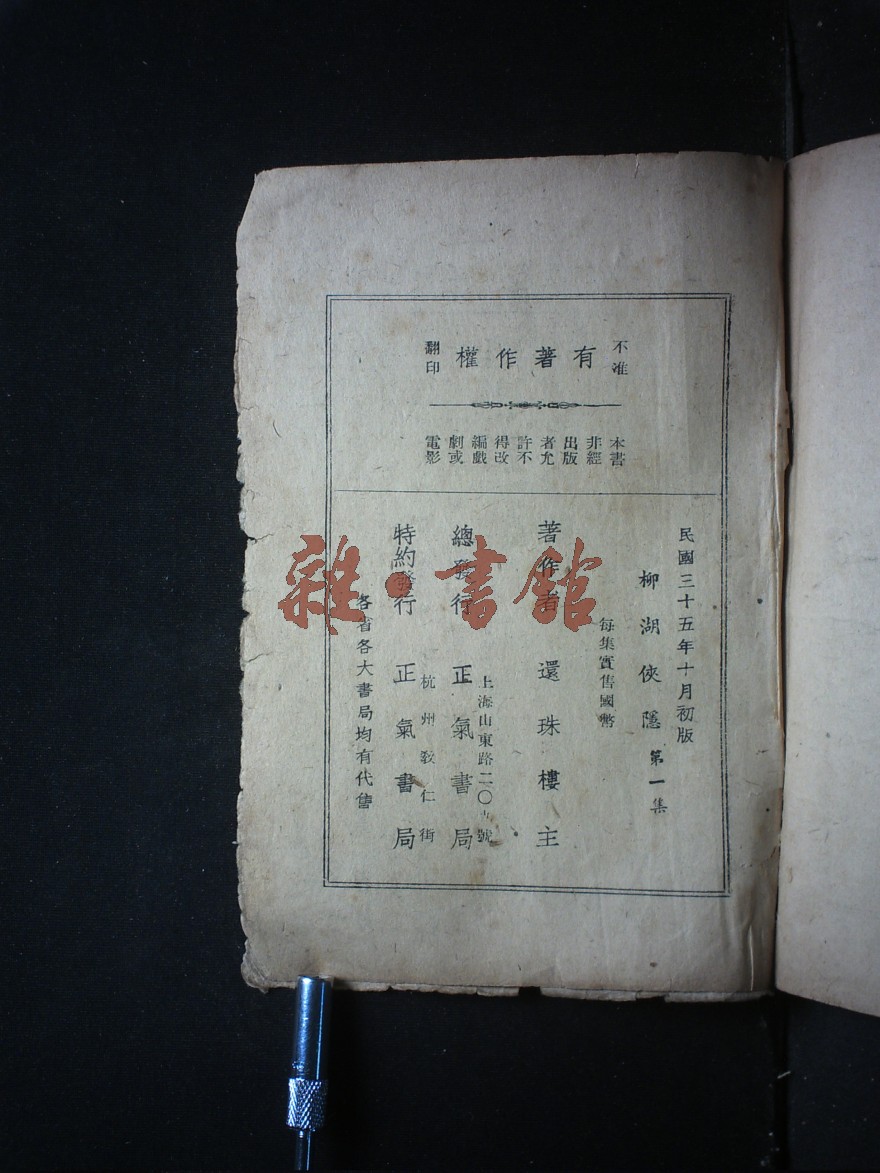 不准翻印
有著作權
本書非經出版者允許不得改編戲劇或電影
民國三十五年十月初版
柳湖俠隱 第一集
每集實售國幣
著作者 還珠樓主
上海山東路二〇 號
總發行 正氣書局
杭州教仁街
特約發行 正氣書局
各省各大書局均有代售
雜·書館